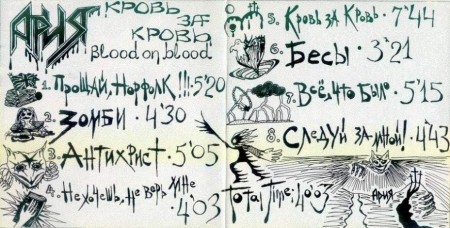 АРИЯ
КРОВЬ
ЗА
КРОВЬ
Blood on blood
1. Прощай, Норфолк!!! · 5'20
2. Зомби · 4'30
3. Антихрист · 5'05
4. Не хочешь, не верь мне
4'03
5. Кровь за Кровь · 7'44
6. Бесы · 3'21
7. Всё, что Было · 5'15
8. Следуй за мной! · 4'43
Total Time: 40'03
Ария